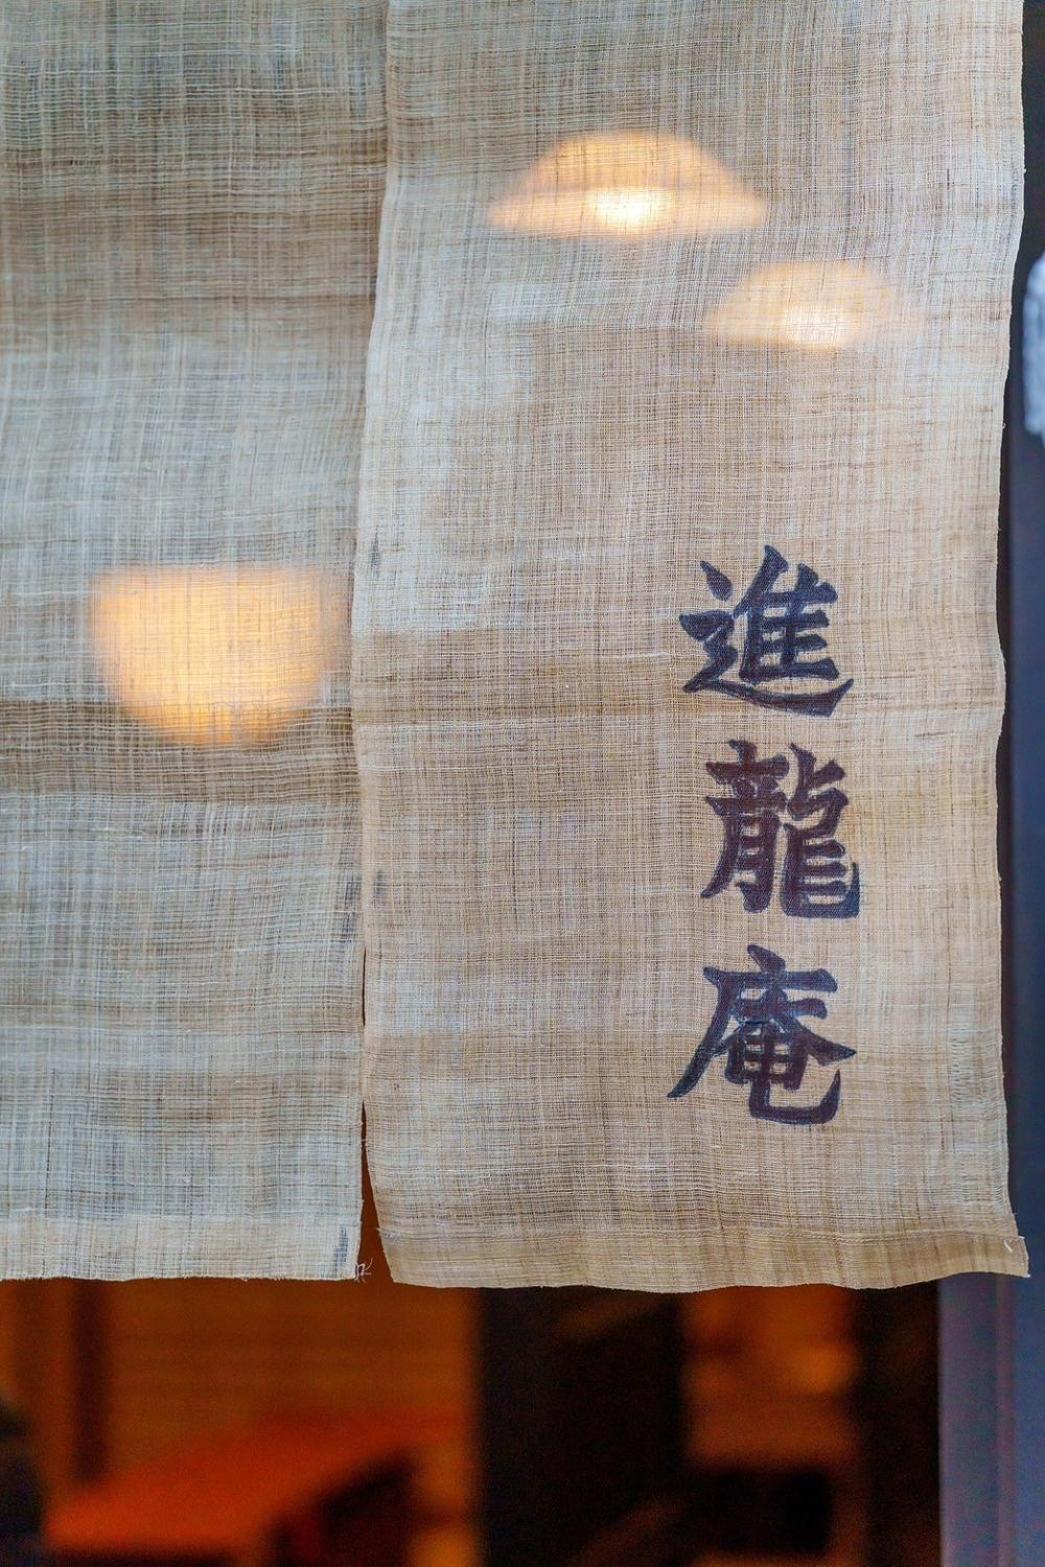 進龍庵